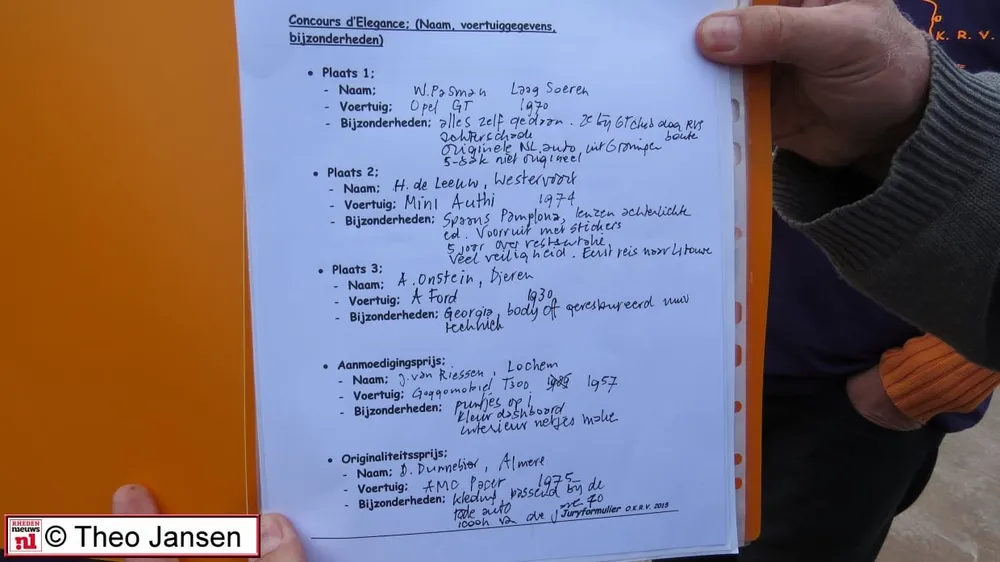 Concours d'Elegance; (Naam, voertuiggegevens,
bijzonderheden)
• Plaats 1;
- Naam; W. Pasman Laag Soeren
- Voertuig; Opel GT 1970
- Bijzonderheden; alles zelf gedaan. 2e bij GT club door RVS
achterschade
originele NL auto, uit Groningen
5-bak niet origineel
• Plaats 2;
- Naam; H. de Leeuw, Westervoort
- Voertuig; Mini Authi 1974
- Bijzonderheden; Spaans Pamplona, lenzen achterlichte
ed. Voorruit met stickers
5 jaar over restauratie,
veel veiligheid. Eerst reis naar
• Plaats 3;
- Naam; A. Onstein, Dieren
- Voertuig; A Ford 1930
- Bijzonderheden; Georgia, body off gerestaureerd
techniek
• Aanmoedigingsprijs;
- Naam; J. van Riessen, Lochem
- Voertuig; Goggomobiel T300 1957
- Bijzonderheden; puntjes op i
kleur dashboard
interieur netjes make
• Originaliteitssprijs;
- Naam; D. Dunnebier, Almere
- Voertuig; AMC Pacer 1975
- Bijzonderheden; kleding passend bij de
auto
icoon van de 70
Juryformulier O.K.R.V. 2015
K.R.V.
RHEDEN
nieuws
.nl
© Theo Jansen